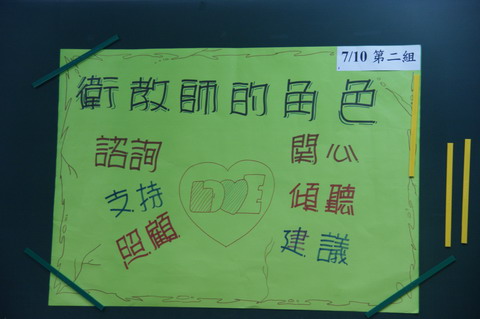 7/10 第二組
衛教師的角色
諮詢
關心
支持
LOVE
傾聽
照顧
建議